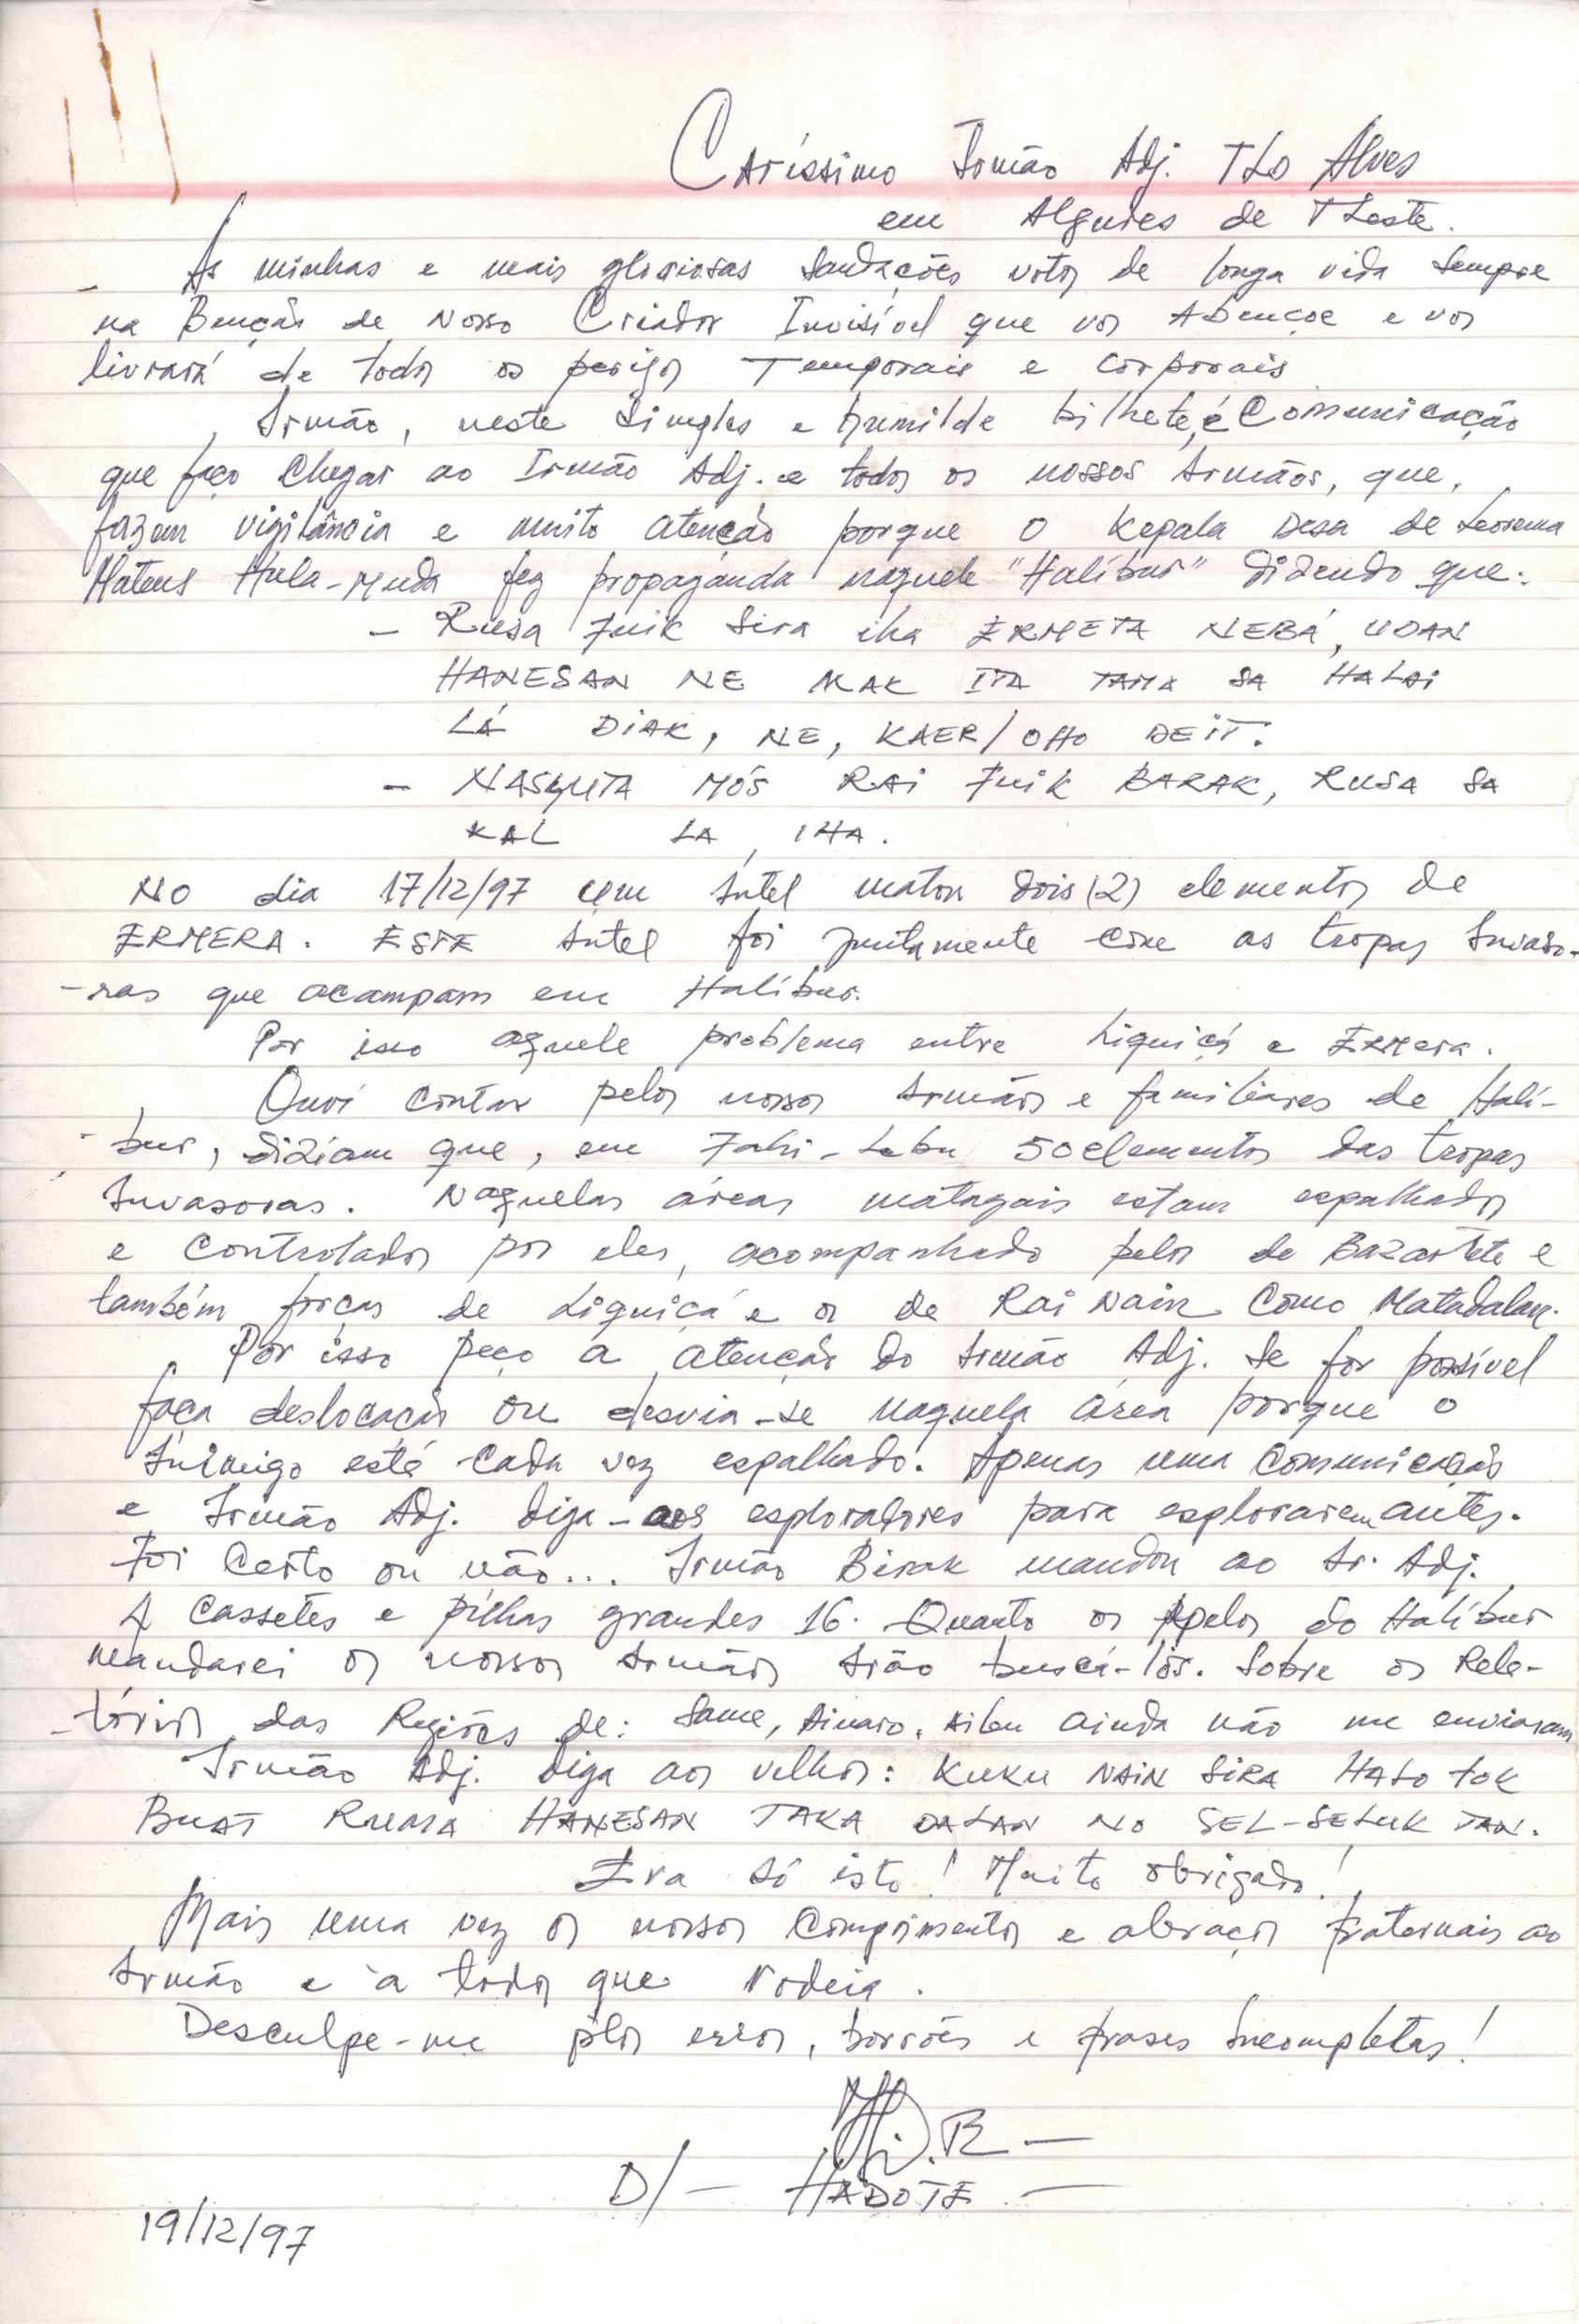 Caríssimo Irmão Adj. TLo Alves
em Algures de TLeste.
- As minhas e mais gloriosas saudações votos de longa vida sempre
na Benção de Nosso Criador Invisível que vos Abençoe e vos
livrará de todos os perigos Temporais e corporais
Irmão, neste simples e humilde bilhete, é Comunicação
que faço chegar ao Irmão Adj. e todos os nossos Irmãos, que,
fazem vigilância e muito atenção porque o Kepala Desa de Leorema
Mateus Hula-Muda fez propaganda naquele "Halíbur" dizendo que:
- Rusa Fuik Sira iha ERMETA NEBÁ, UDAN
HANESAN NE MAK ITA TAMA SA HALAI
LÁ DIAK, NE, KAER/OHO DEIT.
- NASKUTA MÓS RAI Fuik BARAK, RUSA SA
KAL LA IHA.
No dia 17/12/97 um Intel matou dois (2) elementos de
ERMERA. ESTE Intel foi juntamente com as tropas Invaso-
-ras que acampam em Halíbur.
Por isso aquele problema entre Liquiçá e Ermera.
Ouvi contar pelos nossos Irmãos e familiares de Halí-
bur, diziam que, em Fahi-Lebu 50 elementos das tropas
Invasoras. Naquelas áreas matagais estam espalhados
e controlados por eles, acompanhado pelos de Bazartete e
também forças de Liquiçá e os de Rai Nain como Matadalan.
Por isso peço a atenção do Irmão Adj. se for possível
faça deslocação ou desvia-se naquela área porque o
Inimigo está cada vez espalhado. Apenas uma comunicação
e Irmão Adj. diga-aos esploradores para esplorarem antes.
Foi Certo ou não... Irmão Berak mandou ao Ir. Adj.
4 cassetes e pilhas grandes 16. Quanto os Apelos do Halíbur
mandarei os nossos Irmãos Irão buscá-los. Sobre os Rela-
-tórios das Regiões de: Same, Ainaro, Aileu ainda não me enviaram
Irmão Adj. diga aos velhos: KUKU NAIN SIRA HALO tok
Buat Ruma HANESAN TAKA DALAN NO SEL-SELUK TAN.
Era só isto! Muito obrigado!
Mais uma vez os nossos Comprimentos e abraços fraternais ao
Irmão e à todos que rodeia.
Desculpe-me plos erros, borrões e frases Incompletas!
D/- HADOTE -
19/12/97